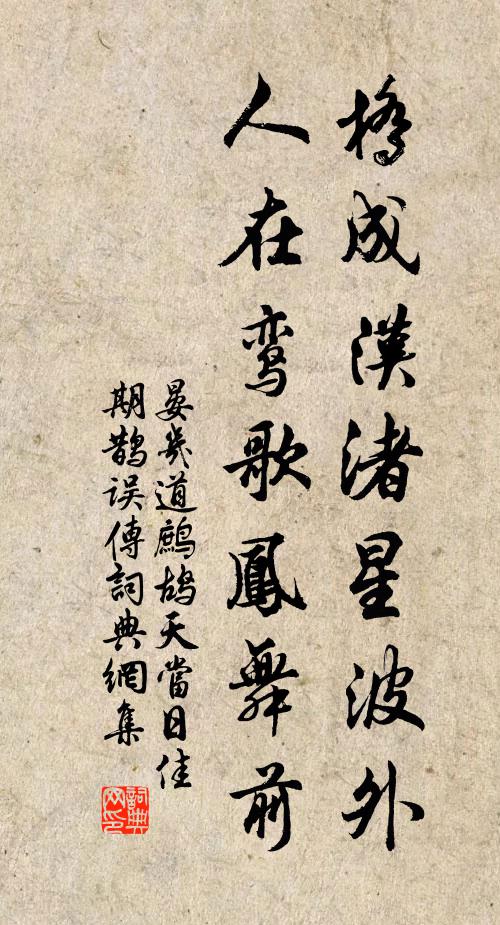 橋成漢渚星波外
人在鸾歌鳳舞前
晏幾道鷓鴣天當日佳
期鵲误傳詞典網集
詞典
网印